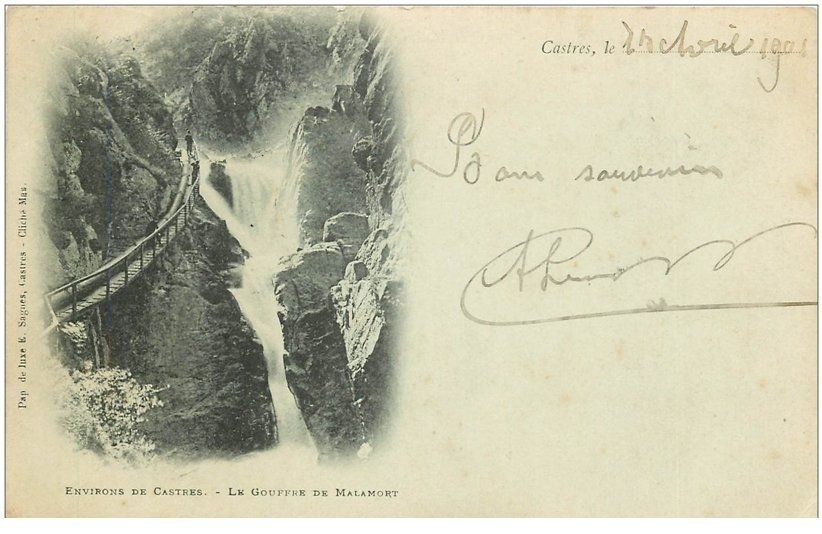 Castres, le Avril 1901
Bon souvenir
Pap. de luxe E. Sagnes, Castres - Cliché Mas.
ENVIRONS DE CASTRES. - LE GOUFFRE DE MALAMORT